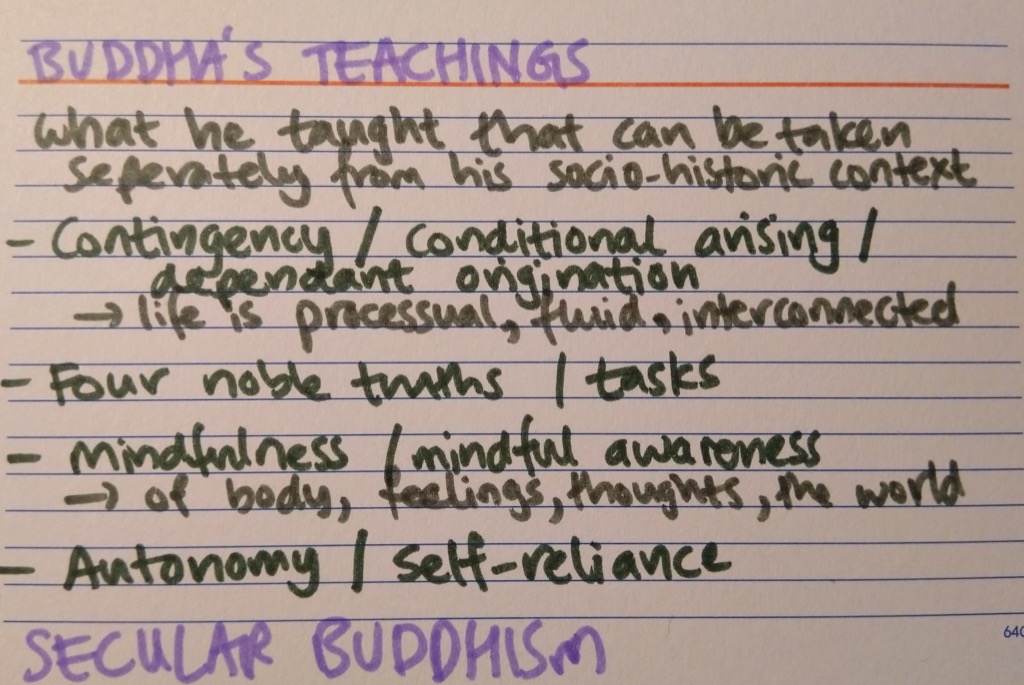 BUDDHA'S TEACHINGS
what he taught that can be taken
seperately from his socio-historic context
- Contingency / conditional arising /
dependant origination
→ life is processual, fluid, interconnected
- Four noble truths / tasks
- Mindfulness / mindful awareness
→ of body, feelings, thoughts, the world
- Autonomy / self-reliance
SECULAR BUDDHISM
640